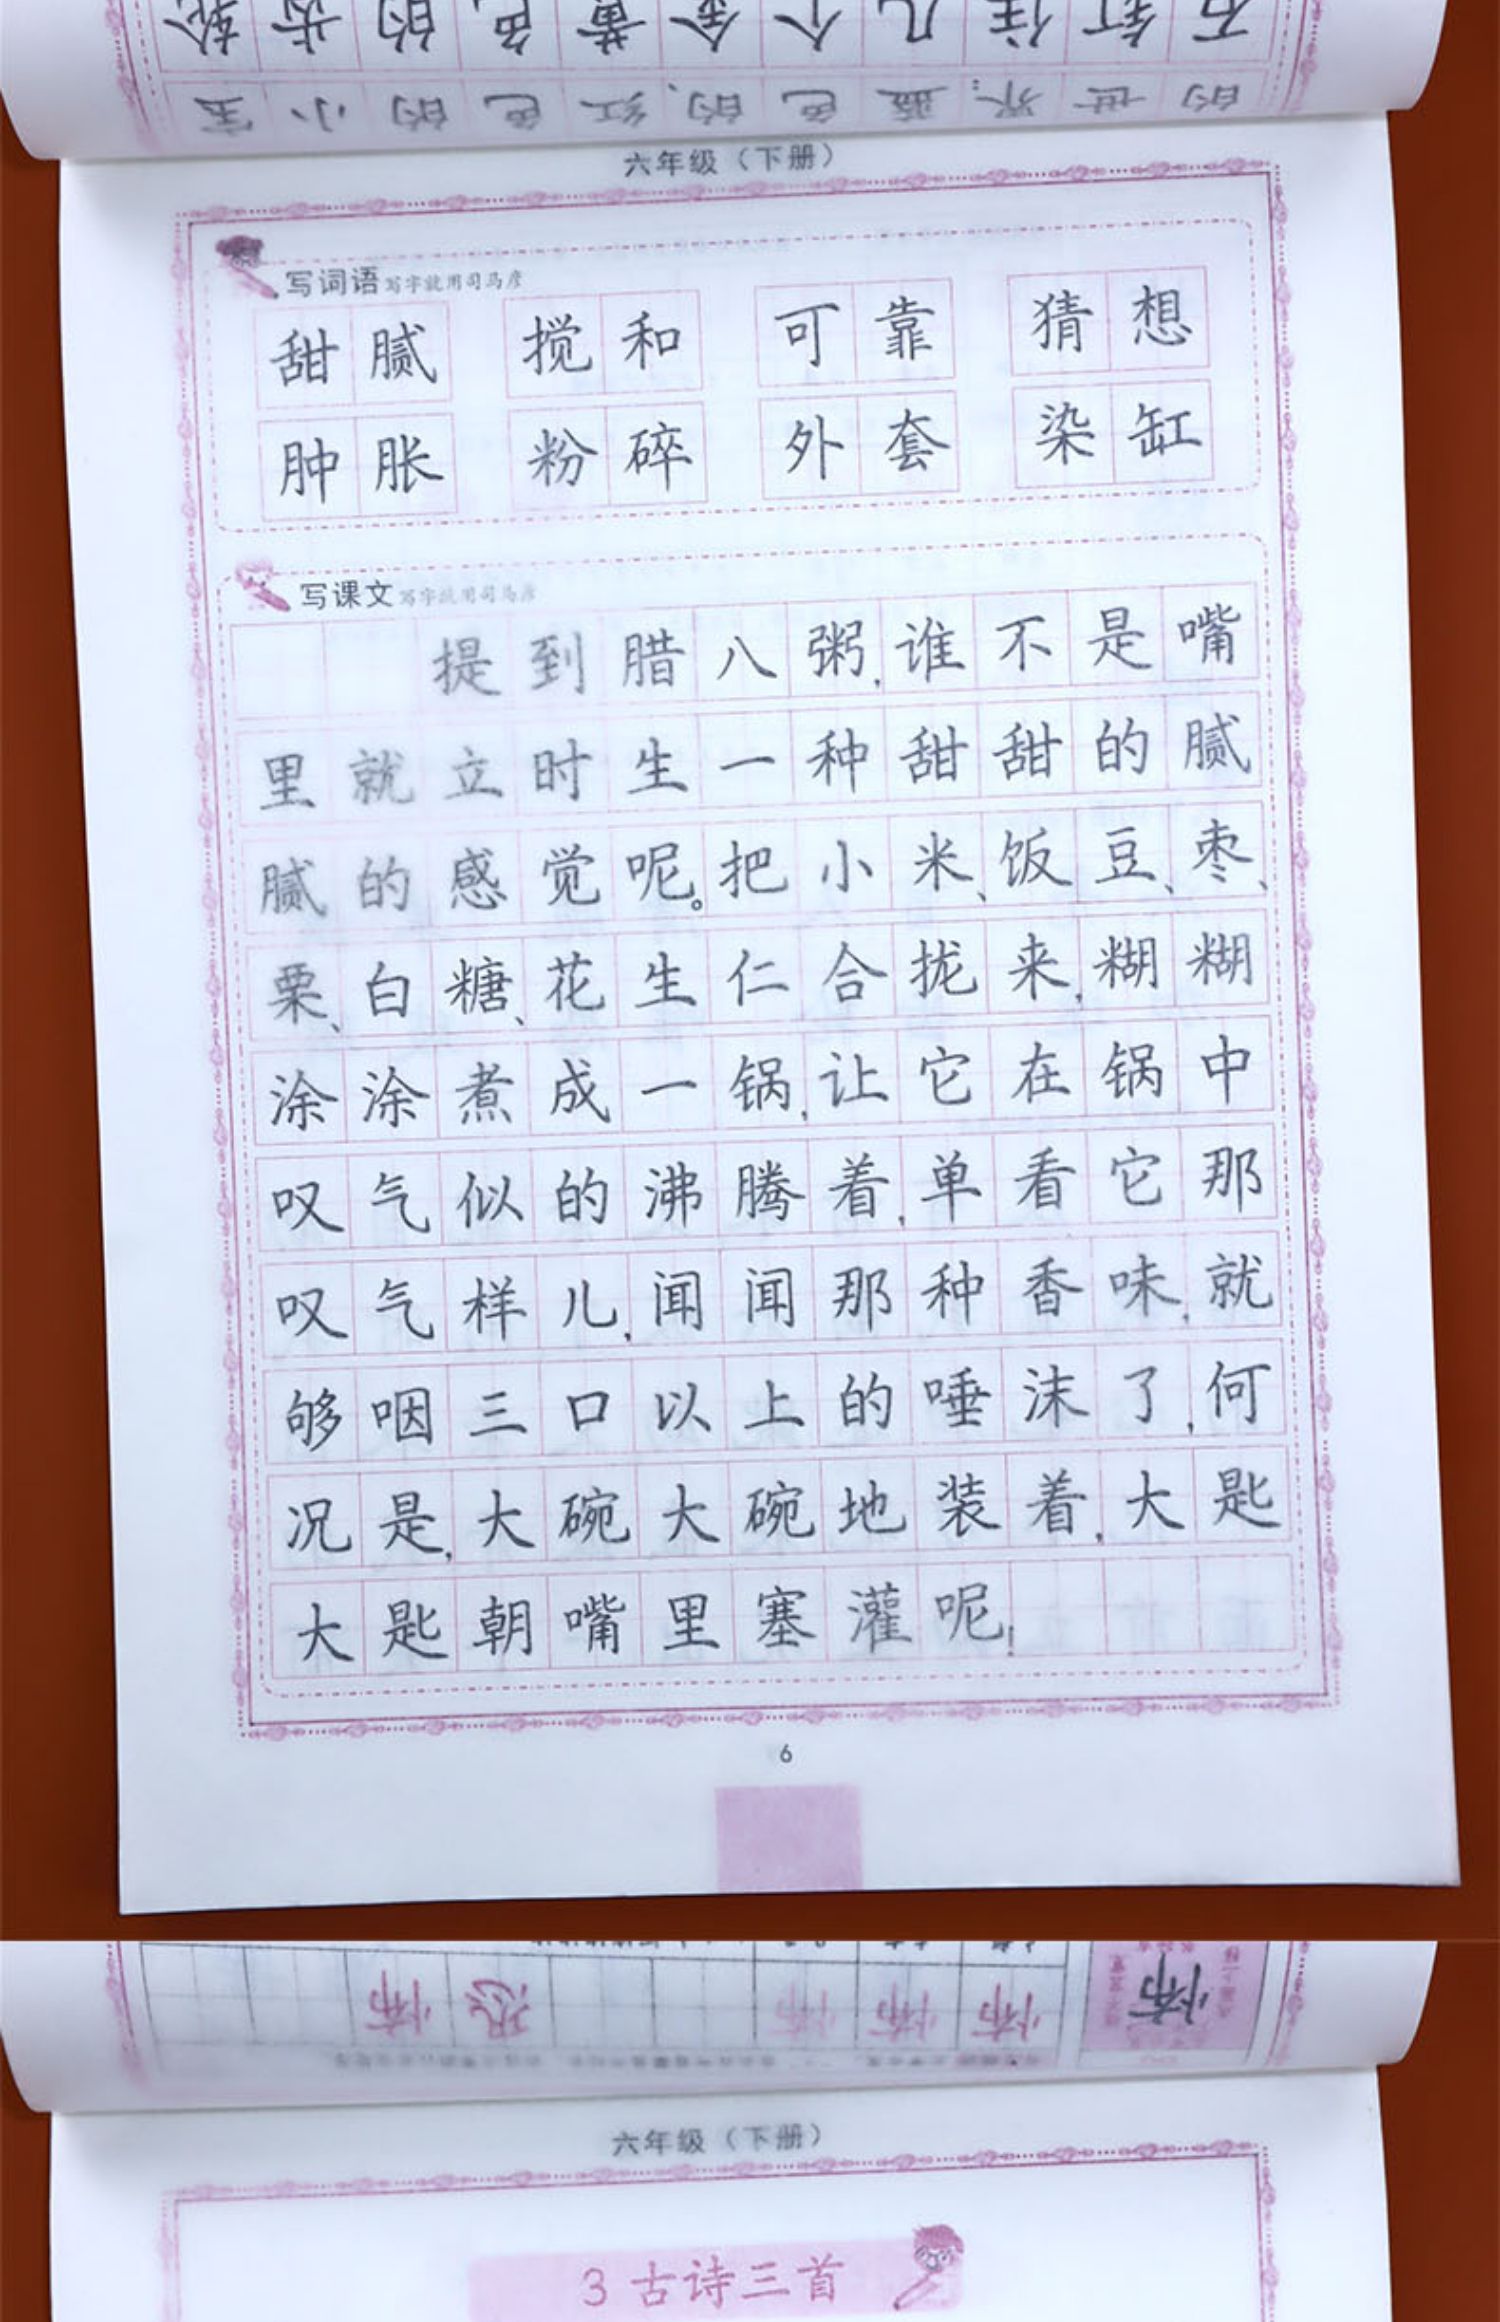 轮齿的色黄金个几住钉石
的世界.蓝色的、红色的小宝
六年级（下册）
写词语 写字就用司马彦
甜腻 搅和 可靠 猜想
肿胀 粉碎 外套 染缸
写课文 写字就用司马彦
提到腊八粥,谁不是嘴
里就立时生一种甜甜的腻
腻的感觉呢。把小米、饭豆、枣、
栗、白糖、花生仁合拢来,糊糊
涂涂煮成一锅,让它在锅中
叹气似的沸腾着,单看它那
叹气样儿,闻闻那种香味,就
够咽三口以上的唾沫了,何
况是,大碗大碗地装着,大匙
大匙朝嘴里塞灌呢!
6
怖 怖 怖 怖 恐 怖
六年级（下册）
3 古诗三首